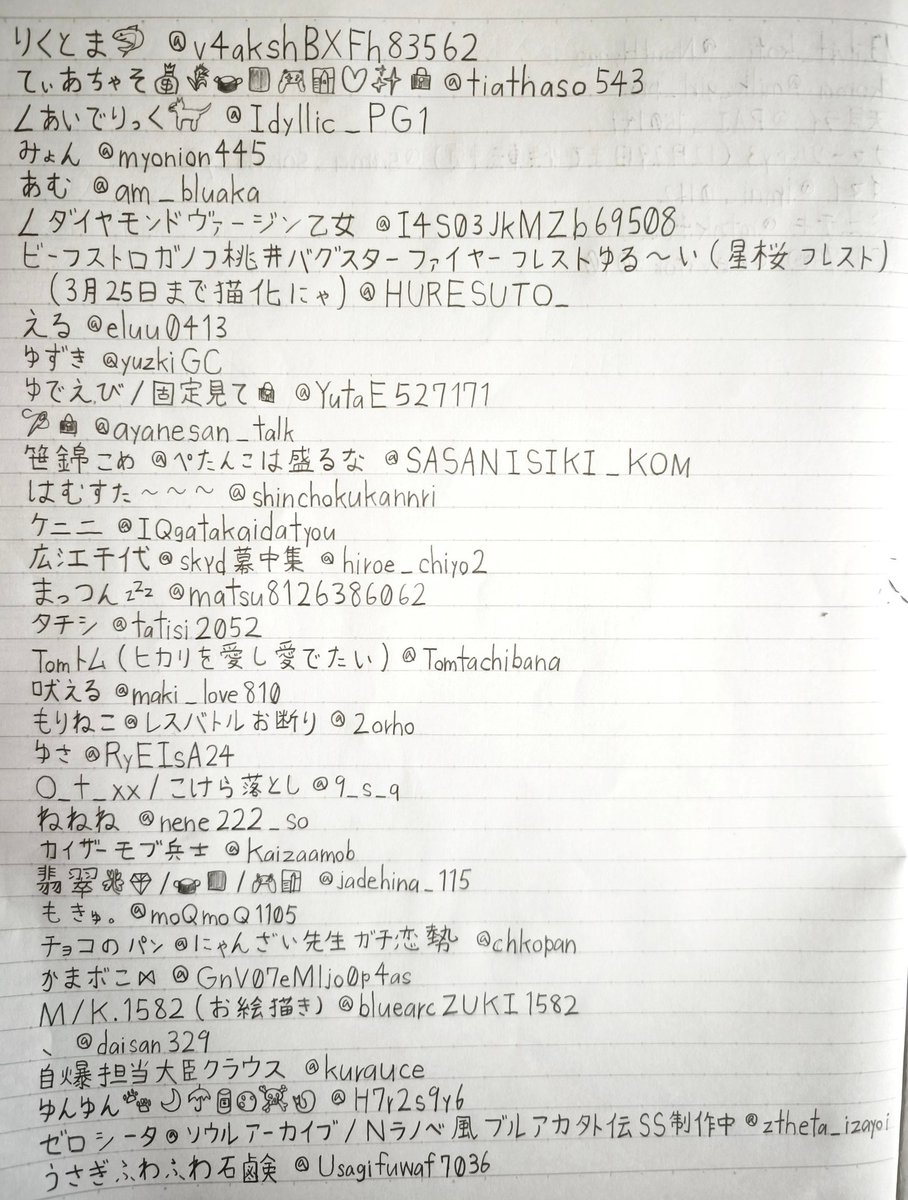 りくとま @v4akshBXFh83562
てぃあちゃそ @tiathaso543
∠あいでりっく @Idyllic_PG1
みょん @myonion445
あむ @am_bluaka
∠ダイヤモンドヴァージン乙女 @I4S03JkMZb69508
ビーフストロガノフ桃井バグスターファイヤーフレストゆる〜い(星桜フレスト)
(3月25日まで猫化にゃ)@HURESUTO_
える @eluu0413
ゆずき @yuzkiGC
ゆでえび/固定見て @YutaE527171
@ayanesan_talk
笹錦こめ@ぺたんこは盛るな @SASANISIKI_KOM
はむすた〜〜〜 @shinchokukannri
ケニニ @IQgatakaidatyou
広江千代@skyd幕中集 @hiroe_chiyo2
まっつん zzz @matsu8126386062
タチシ @tatisi2052
Tomトム(ヒカリを愛し愛でたい)@Tomtachibana
吠える @maki_love810
もりねこ@レスバトルお断り @2orho
ゆさ @RyEIsA24
〇_十_xx/こけら落とし @9_s_q
ねねね @nene222_so
カイザーモブ兵士 @Kaizaamob
翡翠 / / @jadehina_115
もきゅ。@moQmoQ1105
チョコのパン@にゃんざい先生ガチ恋勢 @chkopan
かまボこ⋈ @GnV07eMljo0p4as
M/K.1582(お絵描き)@bluearcZUKI1582
、 @daisan329
自爆担当大臣クラウス @kurauce
ゆんゆん @H7r2s9y6
ゼロシータ@ソウルアーカイブ/Nラノベ風ブルアカ外伝SS制作中@ztheta_izayoi
うさぎふわふわ石鹸 @Usagifuwaf7036